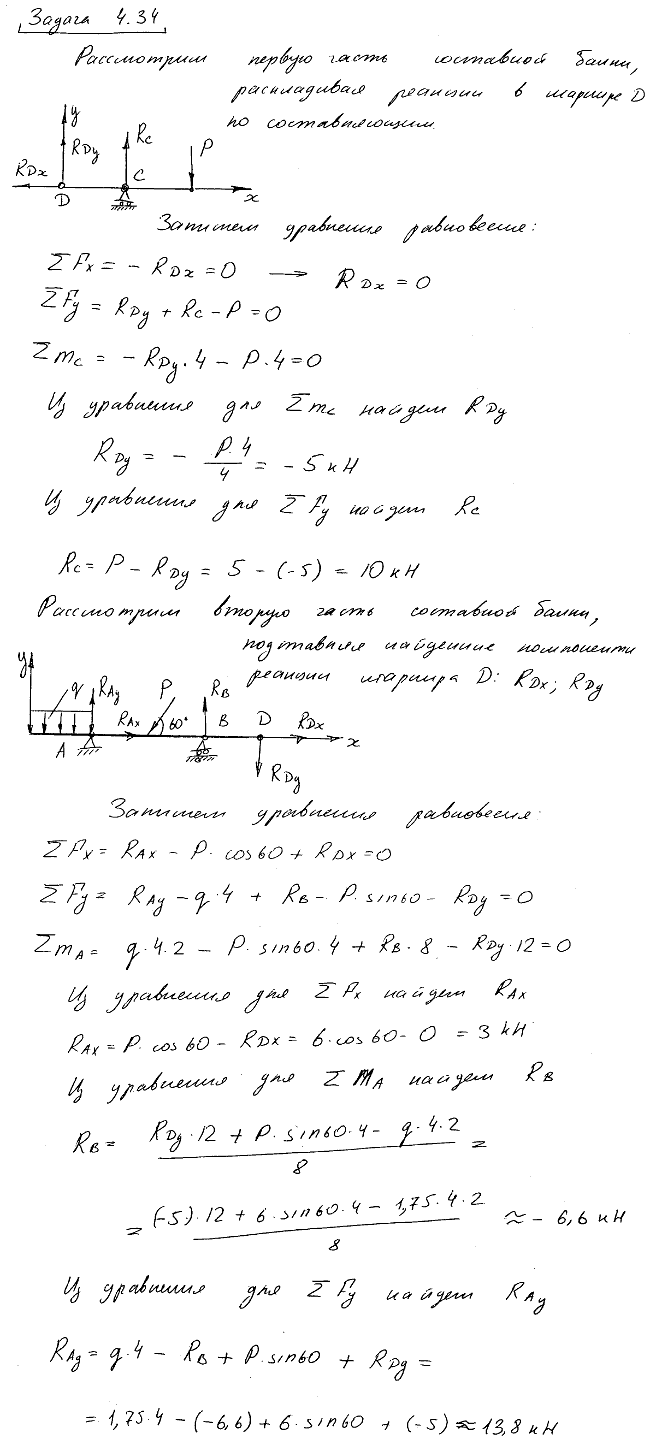 Задача 4.34
Рассмотрим первую часть составной балки,
раскладивая реакции в шарнире D
по составляющим.
y
RDy
Rc
P
RDx
D
C
x
Запишем уравнения равновесия:
ΣFx = - RDx = 0 → RDx = 0
ΣFy = RDy + Rc - P = 0
Σmc = - RDy·4 - P·4 = 0
Из уравнения для Σmc найдем RDy
RDy = - P·4 / 4 = - 5 кН
Из уравнения для ΣFy найдем Rc
Rc = P - RDy = 5 - (-5) = 10 кН
Рассмотрим вторую часть составной балки,
подставляя найденние компоненти
реакции шарнира D: RDx; RDy
y
q
RAy
P
RB
RAx
60°
B
D
RDx
A
x
RDy
Запишем уравнения равновесия:
ΣFx = RAx - P·cos60 + RDx = 0
ΣFy = RAy - q·4 + RB - P·sin60 - RDy = 0
ΣmA = q·4·2 - P·sin60·4 + RB·8 - RDy·12 = 0
Из уравнения для ΣFx найдем RAx
RAx = P·cos60 - RDx = 6·cos60 - 0 = 3 кН
Из уравнения для ΣmA найдем RB
RB = RDy·12 + P·sin60·4 - q·4·2 / 8 =
= (-5)·12 + 6·sin60·4 - 1,75·4·2 / 8 ≈ - 6,6 кН
Из уравнения для ΣFy найдем RAy
RAy = q·4 - RB + P·sin60 + RDy =
= 1,75·4 - (-6,6) + 6·sin60 + (-5) ≈ 13,8 кН